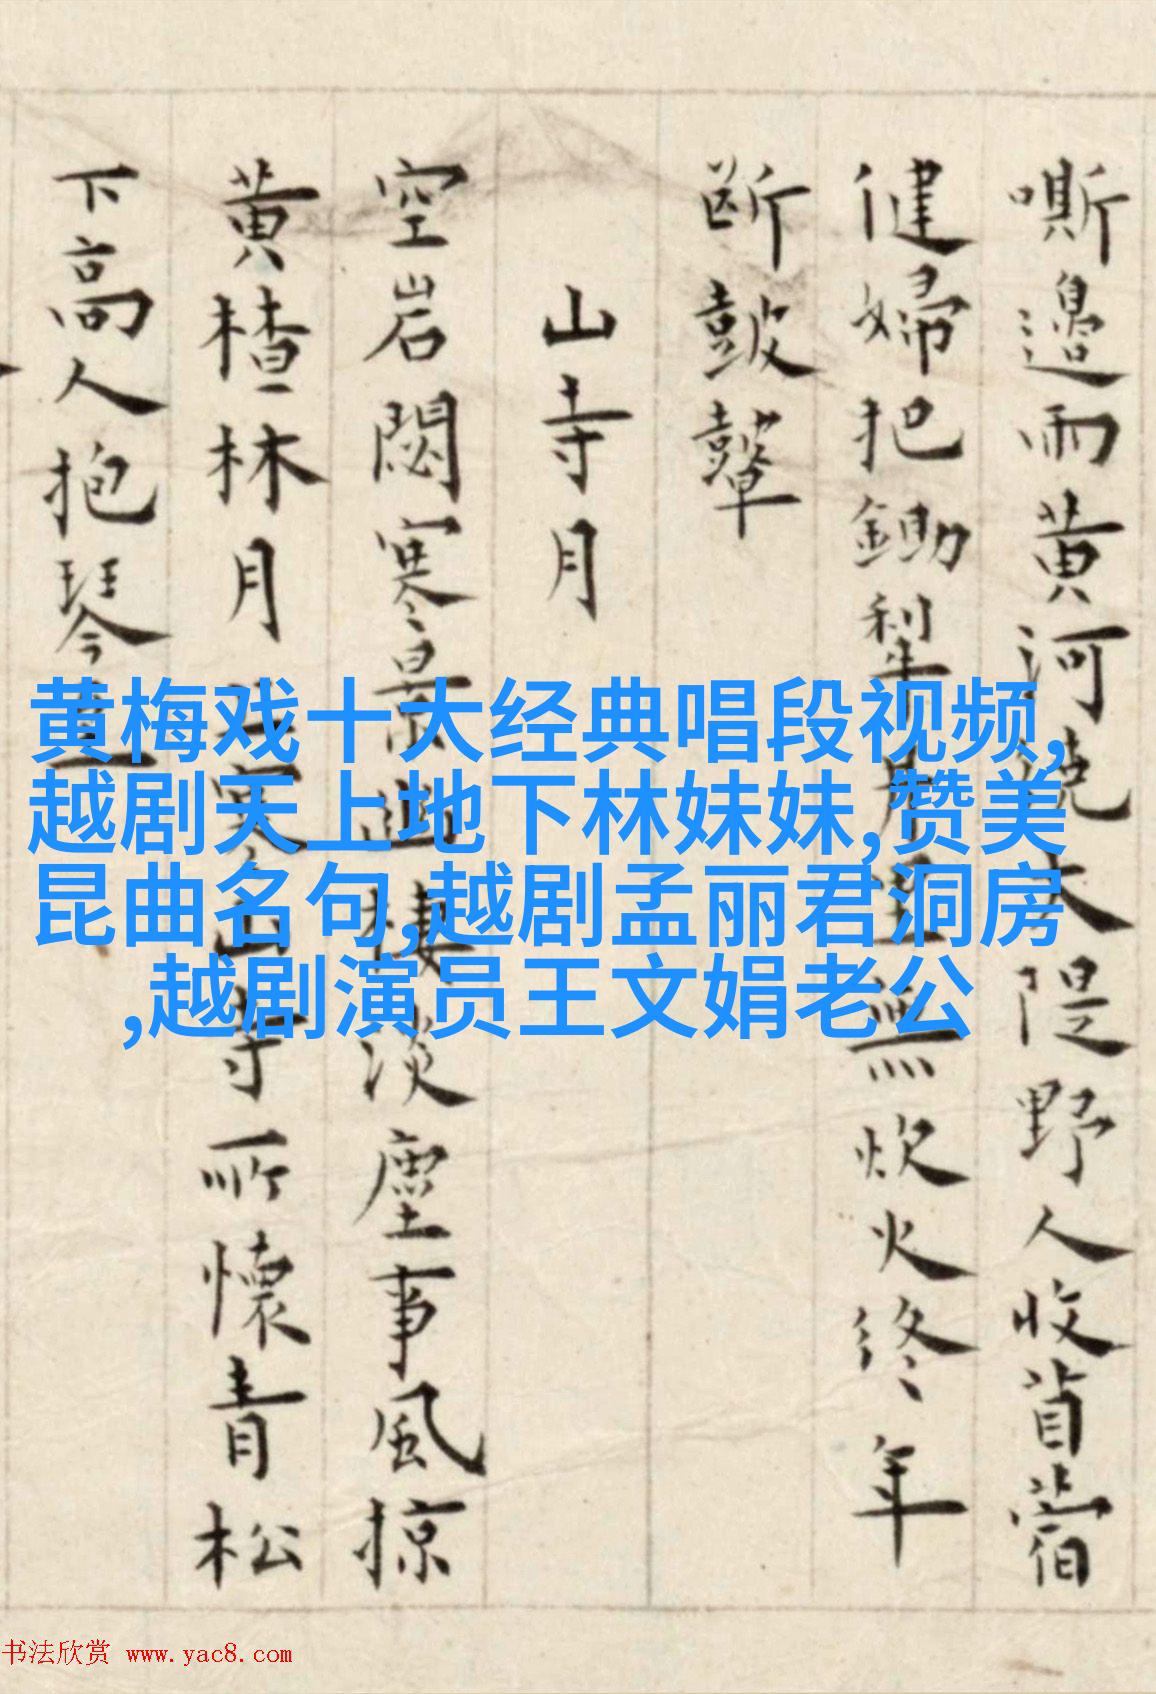 嘶邊雨黄河曉大隄野人收苜蓿
健婦把鋤犁月無炊火終年
斷鼓鼙
山寺月
空岩閟寒景淒淡塵事風掠
黄楂林月寒山寺所懷青松
下高人抱琴
黄梅戏十大经典唱段视频,
越剧天上地下林妹妹,赞美
昆曲名句,越剧孟丽君洞房
,越剧演员王文娟老公
书法欣赏 www.yac8.com